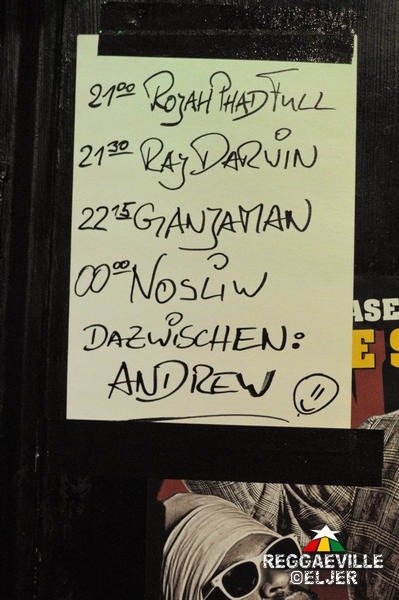 21⁰⁰ ROJAH PHAD FULL
21³⁰ RAY DARWIN
22¹⁵ GANJAMAN
00⁰⁰ NOSLIW
DAZWISCHEN:
ANDREW
ASE
E S
REGGAEVILLE
©ELJER